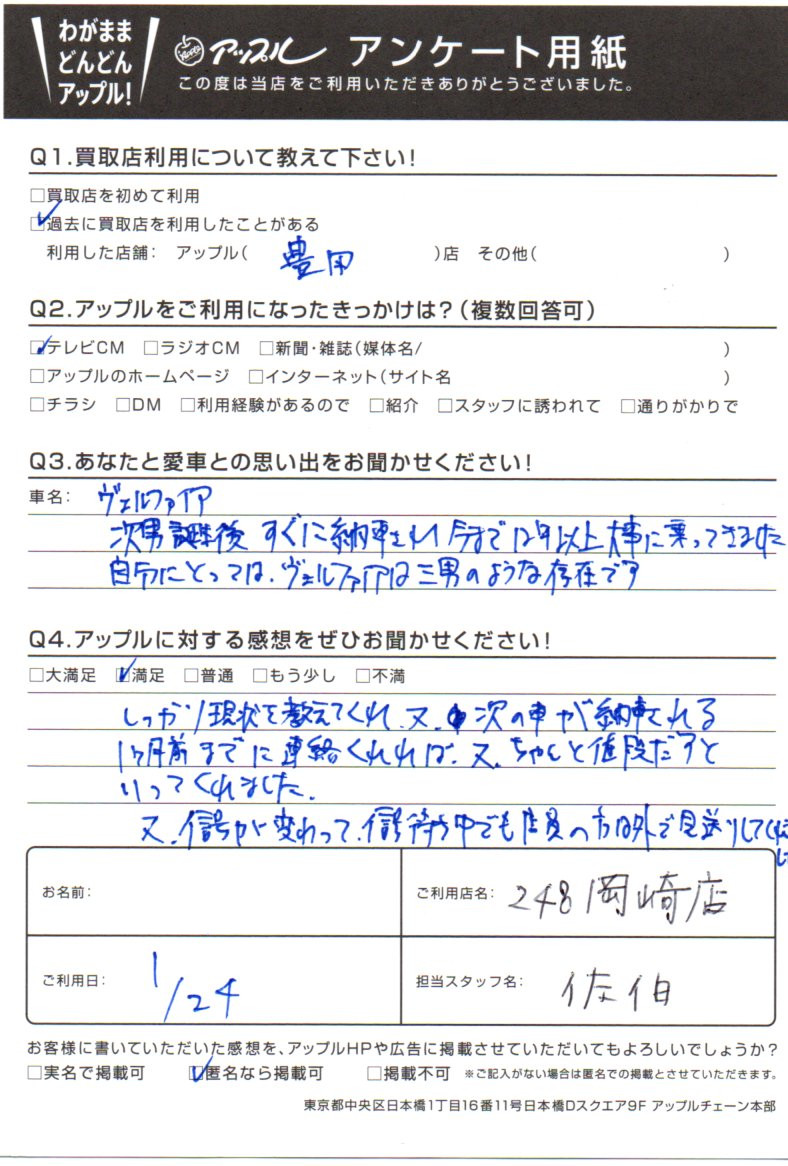 わがまま
どんどん
アップル!
アップル アンケート用紙
この度は当店をご利用いただきありがとうございました。
Q1.買取店利用について教えて下さい!
□買取店を初めて利用
☑過去に買取店を利用したことがある
利用した店舗: アップル( 豊田 )店 その他( )
Q2.アップルをご利用になったきっかけは?(複数回答可)
☑テレビCM □ラジオCM □新聞・雑誌(媒体名/ )
□アップルのホームページ □インターネット(サイト名 )
□チラシ □DM □利用経験があるので □紹介 □スタッフに誘われて □通りがかりで
Q3.あなたと愛車との思い出をお聞かせください!
車名: ヴェルファイア
次男誕生後 すぐに納車され 今まで12年以上大事に乗ってきました
自分にとっては、ヴェルファイアは三男のような存在です
Q4.アップルに対する感想をぜひお聞かせください!
□大満足 ☑満足 □普通 □もう少し □不満
しっかり現状を教えてくれ、又、次の車が納車される
1ヶ月前までに連絡くれれば、又、ちゃんと値段だすと
いってくれました。
又、信号が変わって、信号待ち中でも店員の方は外で見送りしてくれ
お名前:
ご利用店名: 248岡崎店
ご利用日: 1/24
担当スタッフ名: 佐伯
お客様に書いていただいた感想を、アップルHPや広告に掲載させていただいてもよろしいでしょうか?
□実名で掲載可 ☑匿名なら掲載可 □掲載不可 ※ご記入がない場合は匿名での掲載とさせていただきます。
東京都中央区日本橋1丁目16番11号日本橋Dスクエア9F アップルチェーン本部